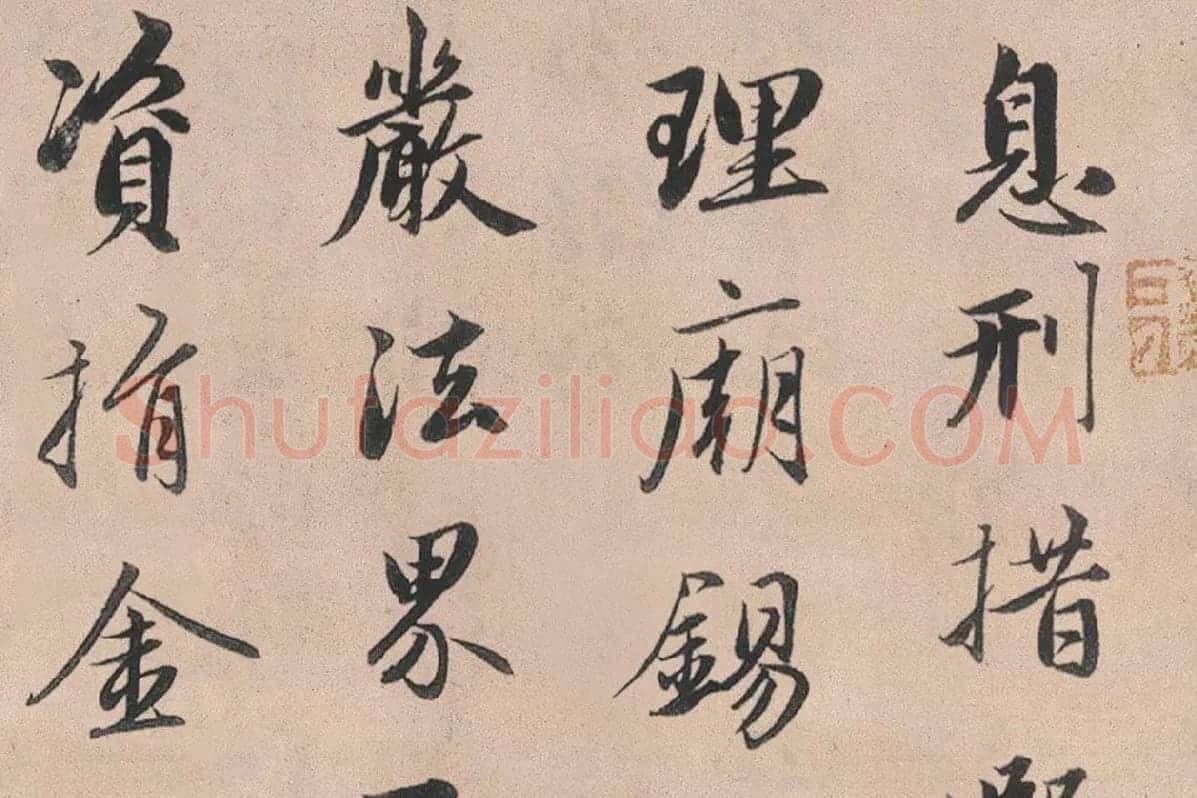 息刑措
理廟錫
嚴法界
資捐金
Shufaziliao.COM